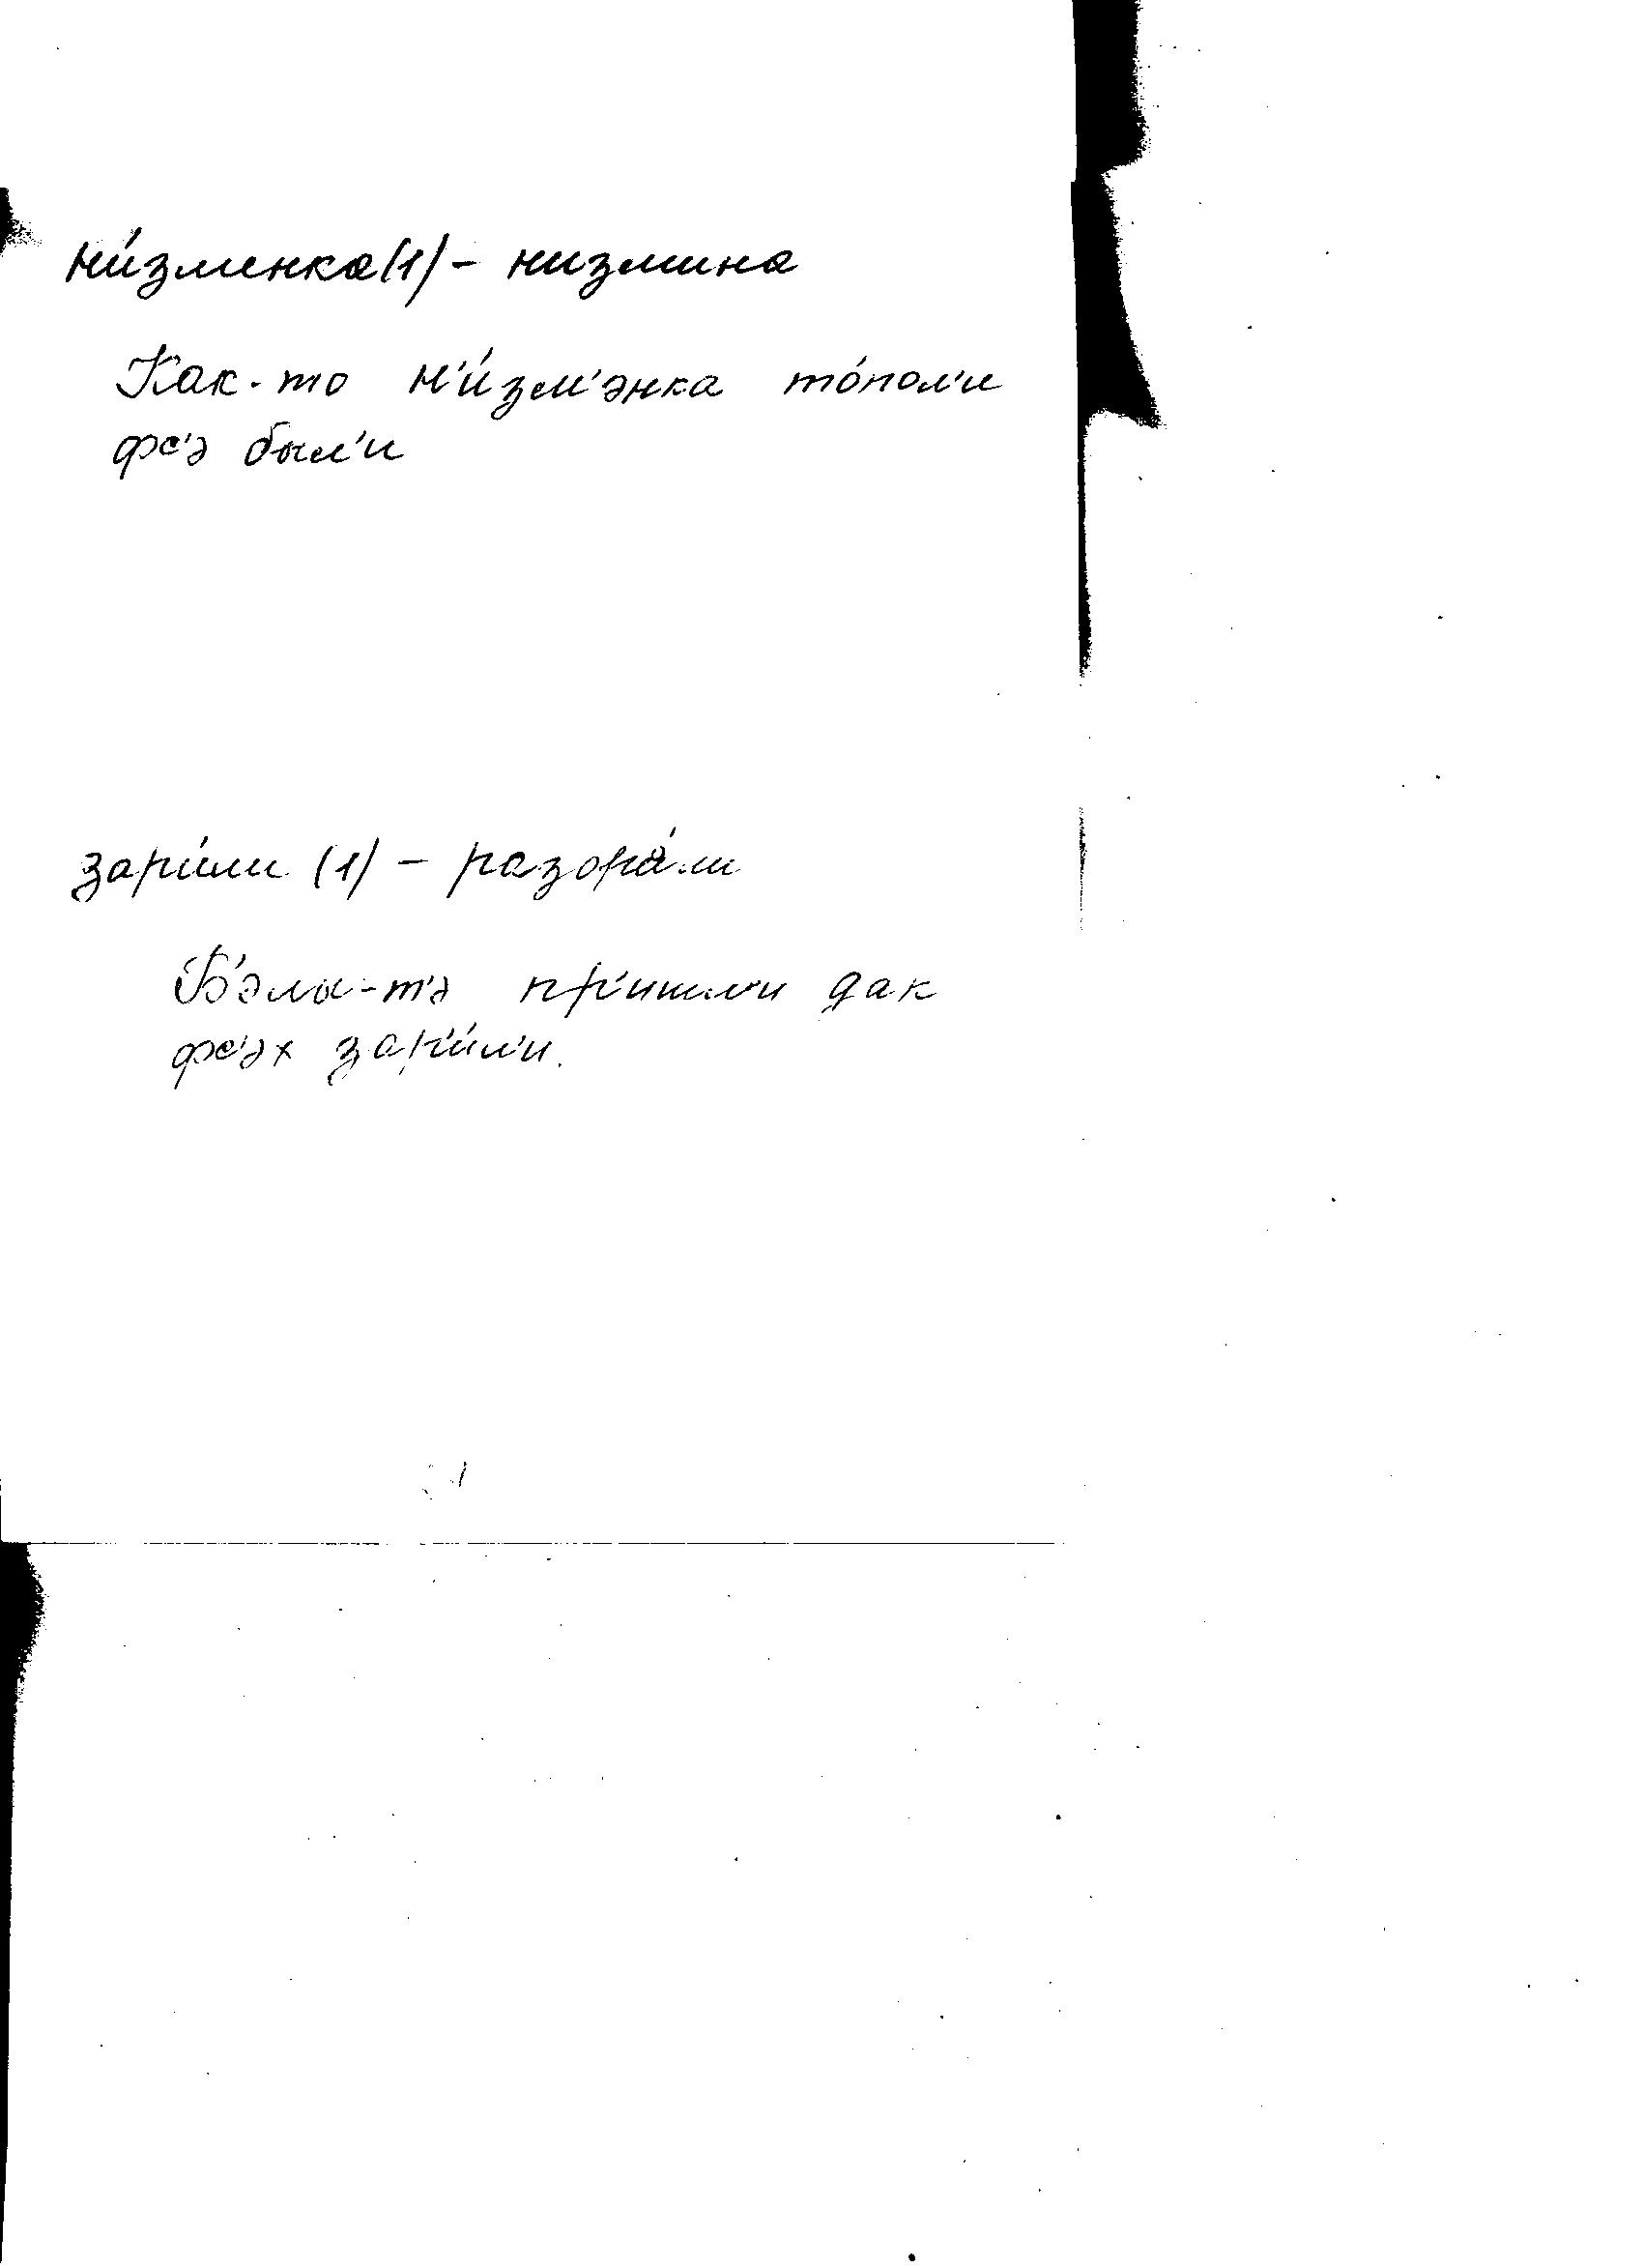 ни́зменка (1) - низмина
Как-то н'и́зм'энка то́пол'и
фс'э был'и
зари́ли (1) - разора́ли
Б'элы-т'э пр'ишл'и дак
фс'эх зар'и́л'и.